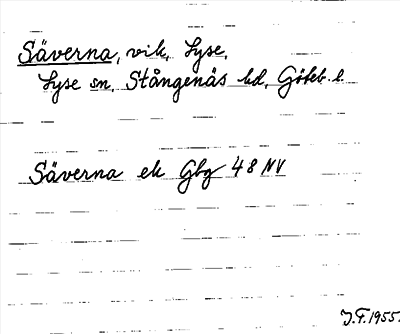 Säverna, vik, Lyse,
Lyse sn. Stångenäs hd, Göteb. l.
Säverna ek Gbg 48 NV
J.F. 1955.